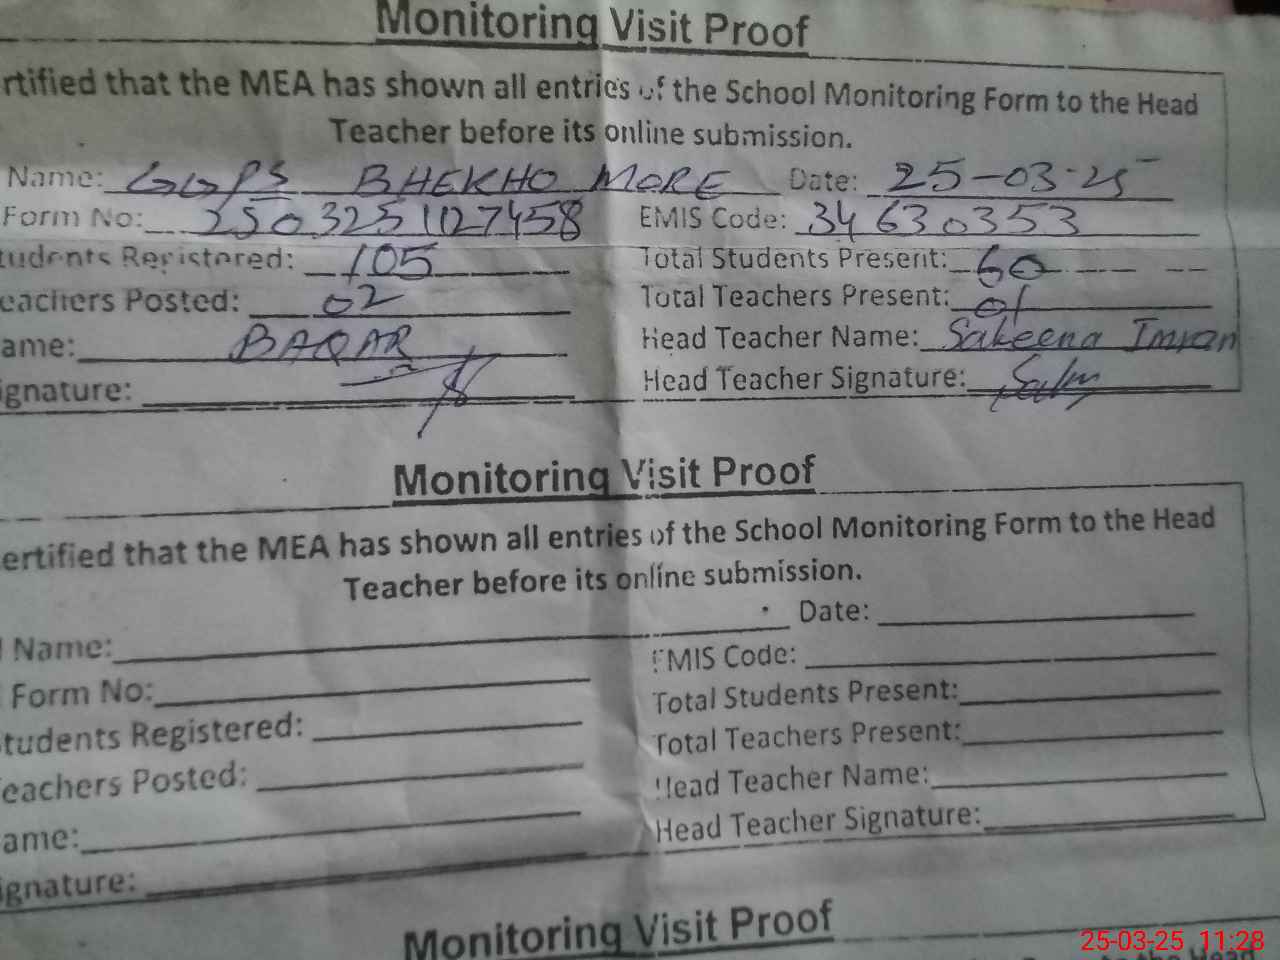 Monitoring Visit Proof
rtified that the MEA has shown all entries of the School Monitoring Form to the Head
Teacher before its online submission.
Name: GGPS BHEKHO MORE Date: 25-03-25
Form No: 2503251127458 EMIS Code: 34630353
tudents Registered: 105 Total Students Present: 60
eachers Posted: 02 Total Teachers Present: 01
ame: BAQAR Head Teacher Name: Sakeena Imran
ignature: Head Teacher Signature:
Monitoring Visit Proof
ertified that the MEA has shown all entries of the School Monitoring Form to the Head
Teacher before its online submission.
Name: Date:
Form No: EMIS Code:
tudents Registered: Total Students Present:
eachers Posted: Total Teachers Present:
ame: Head Teacher Name:
ignature: Head Teacher Signature:
Monitoring Visit Proof
25-03-25 11:28
to the Head